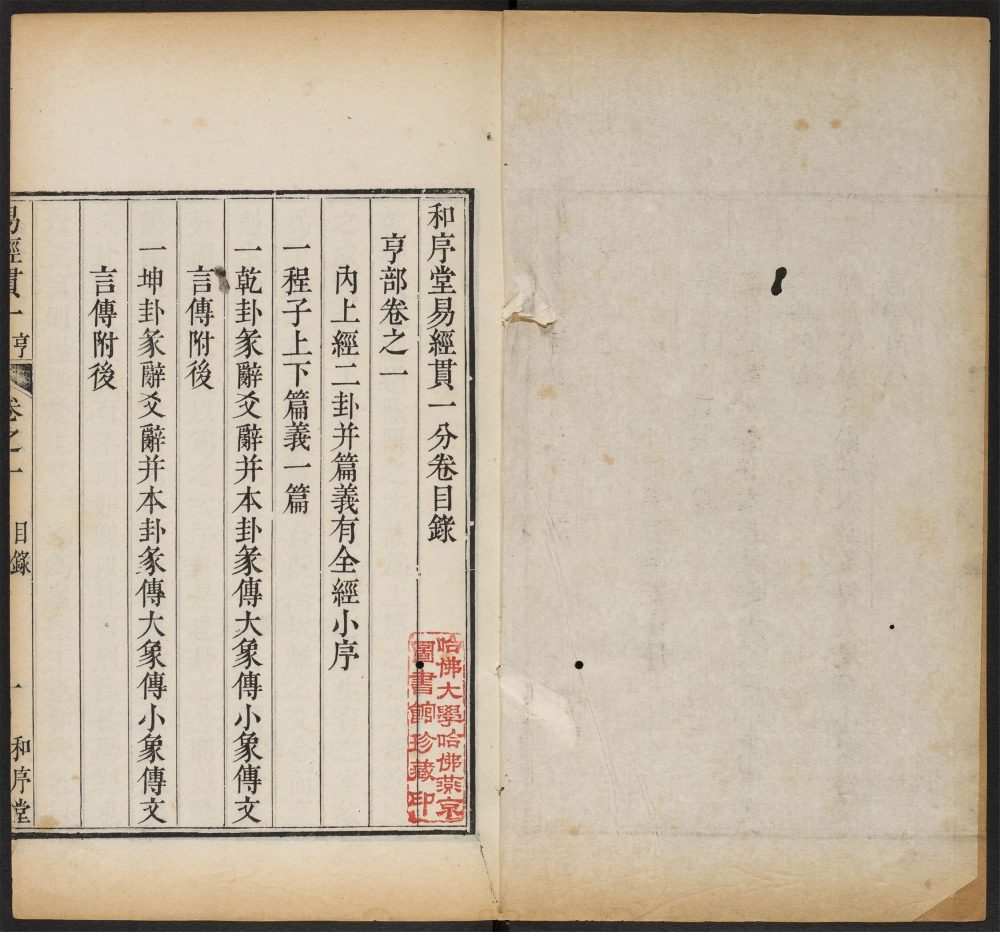 和序堂易經貫一分卷目錄
亨部卷之一
內上經二卦并篇義有全經小序
一程子上下篇義一篇
一乾卦彖辭爻辭并本卦彖傳大象傳小象傳文
言傳附後
一坤卦彖辭爻辭并本卦彖傳大象傳小象傳文
言傳附後
易經貫一 亨 卷之一 目錄 一 和序堂
哈佛大學哈佛燕京
圖書館珍藏印